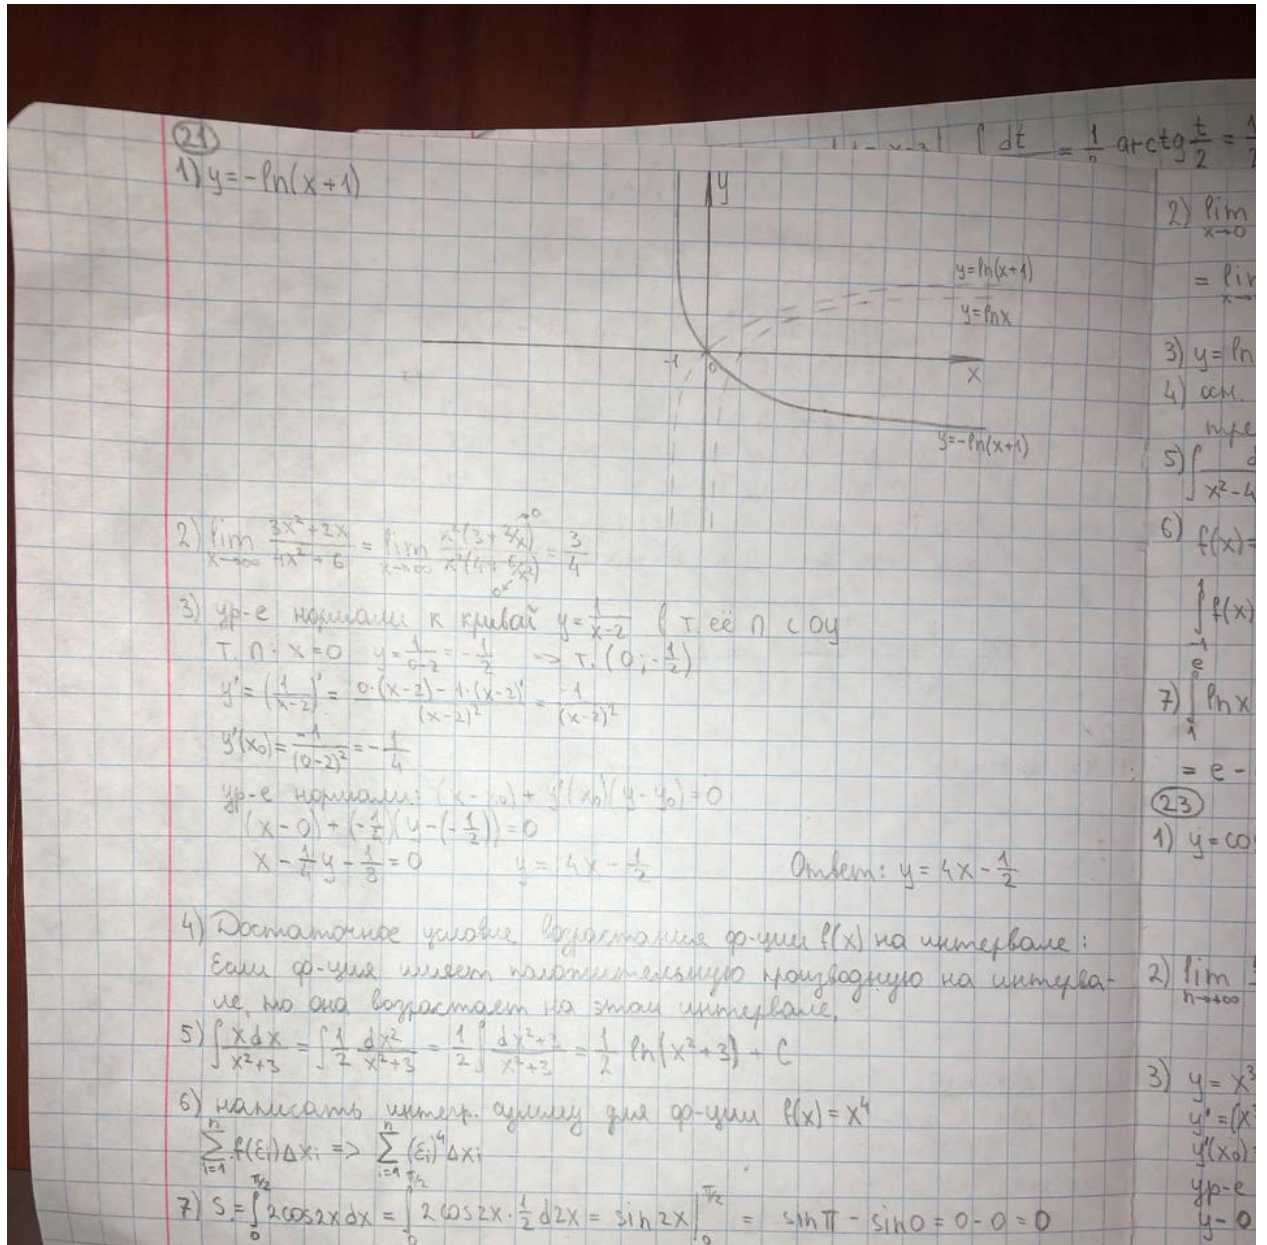 21
1) y=-ln(x+1)
y
y=ln(x+1)
y=lnx
-1 0 x
y=-ln(x+1)
2) lim x→∞ (3x²+2x)/(4x²+6) = lim x→∞ x²(3+2/x)→0 / x²(4+6/x²)→0 = 3/4
3) ур-е нормали к кривой y=1/(x-2) в т. её п с оу
т. п: x=0 y=1/(0-2)=-1/2 => т. (0;-1/2)
y'=(1/(x-2))'=(0·(x-2)-1·(x-2)')/(x-2)²=-1/(x-2)²
y'(x₀)=-1/(0-2)²=-1/4
ур-е нормали: (x-x₀)+y'(x₀)(y-y₀)=0
(x-0)+(-1/4)(y-(-1/2))=0
x-1/4y-1/8=0 y=4x-1/2 Ответ: y=4x-1/2
4) Достаточное условие возрастания ф-ции f(x) на интервале:
Если ф-ция имеет положительную производную на интерва-
ле, то она возрастает на этом интервале.
5) ∫xdx/(x²+3)=∫1/2 dx²/(x²+3)=1/2∫dx²+3/(x²+3)=1/2 ln(x²+3)+C
6) написать интегр. сумму для ф-ции f(x)=x⁴
∑ i=1 n f(εi)Δxi => ∑ i=1 n (εi)⁴Δxi
7) S=∫0 π/2 2cos2xdx=∫0 π/2 2cos2x·1/2d2x=sin2x|0 π/2 = sinπ-sin0=0-0=0
∫dt = 1/2 arctg t/2 =
2) lim x→0
= lim
3) y=ln
4) осн.
5) ∫ x²-4
6) f(x)=
∫ -1 f(x)
7) ∫ 1 e lnx
= e-
23
1) y=cos
2) lim n→+∞
3) y=x³
y'=(x³
y'(x₀)=
ур-е
y-0